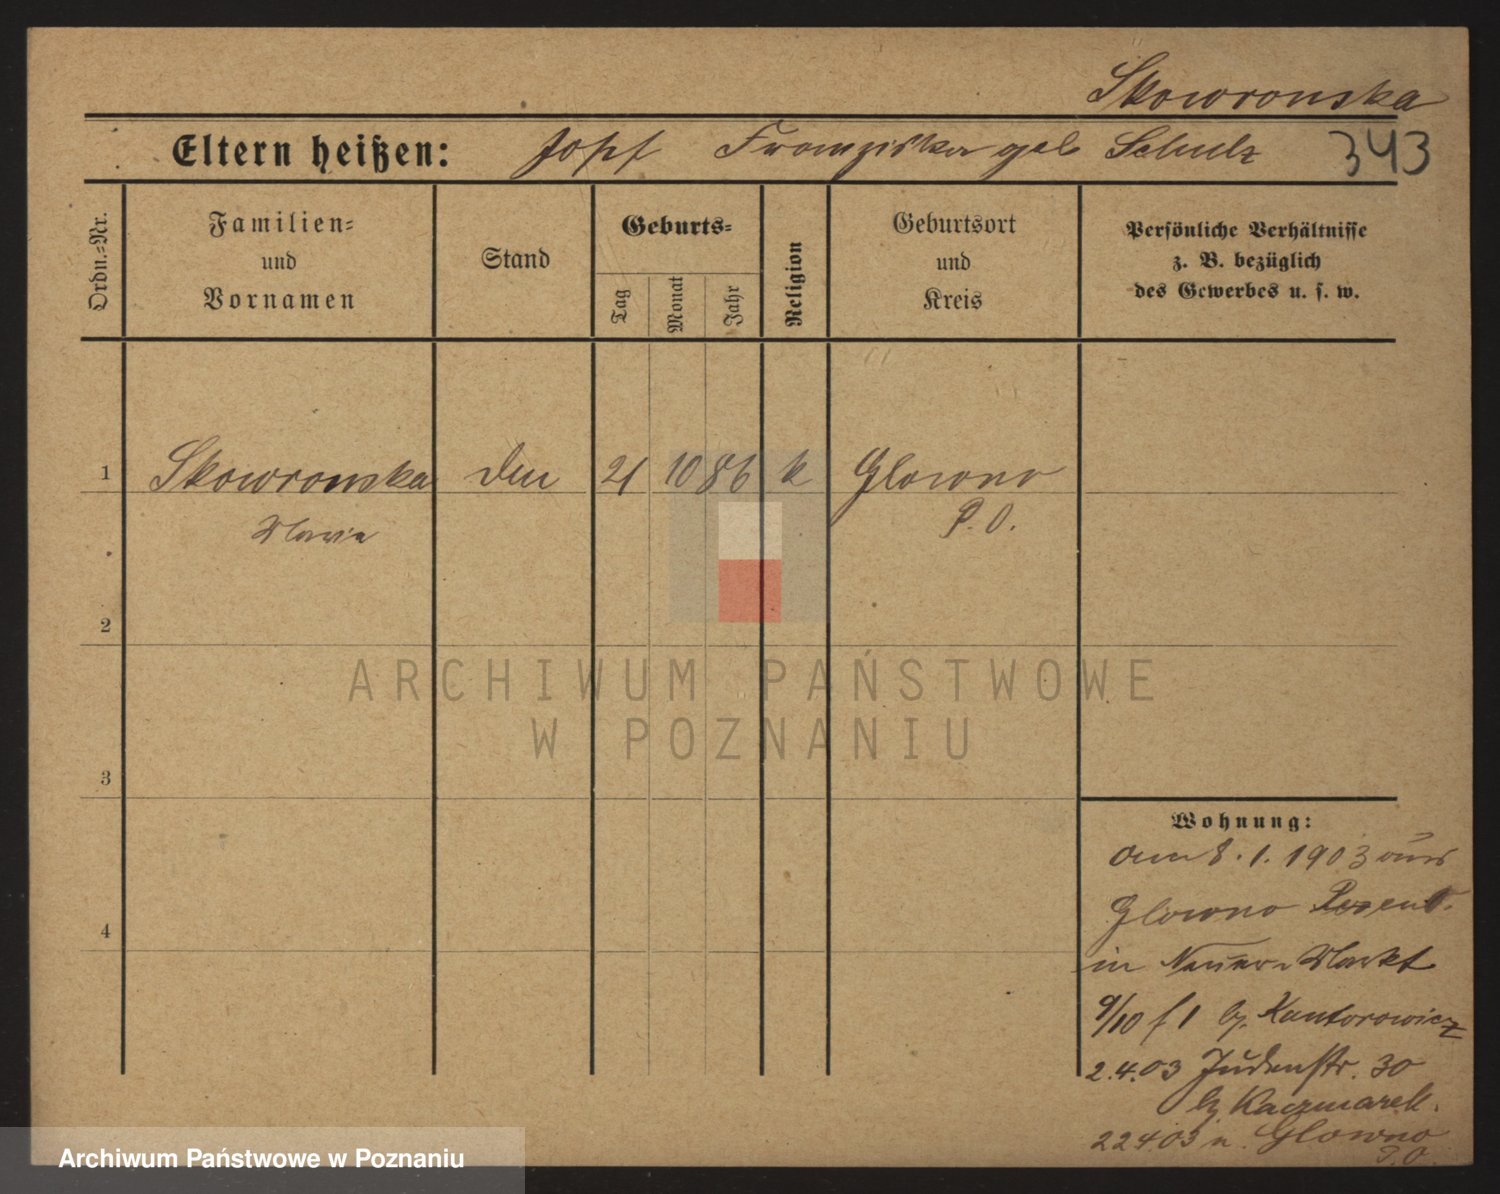 Skowronska
Eltern heißen: Josef Franziska geb Schulz 343
Ordn.-Nr.
Familien-
und
Vornamen
Stand
Geburts-
Tag
Monat
Jahr
Religion
Geburtsort
und
Kreis
Persönliche Verhältnisse
z. B. bezüglich
des Gewerbes u. s. w.
1 Skowronska 21 10 86 k Glowno
Maria P. O.
2
3
4
Wohnung:
am 8.1.1903 aus
Glowno
in Neuer Markt
9/10 f 1 bz. Kantorowicz
2.4.03 Judenstr. 30
bz Kaczmarek.
22403 n. Glowno
P.O.
ARCHIWUM PAŃSTWOWE
W POZNANIU
Archiwum Państwowe w Poznaniu